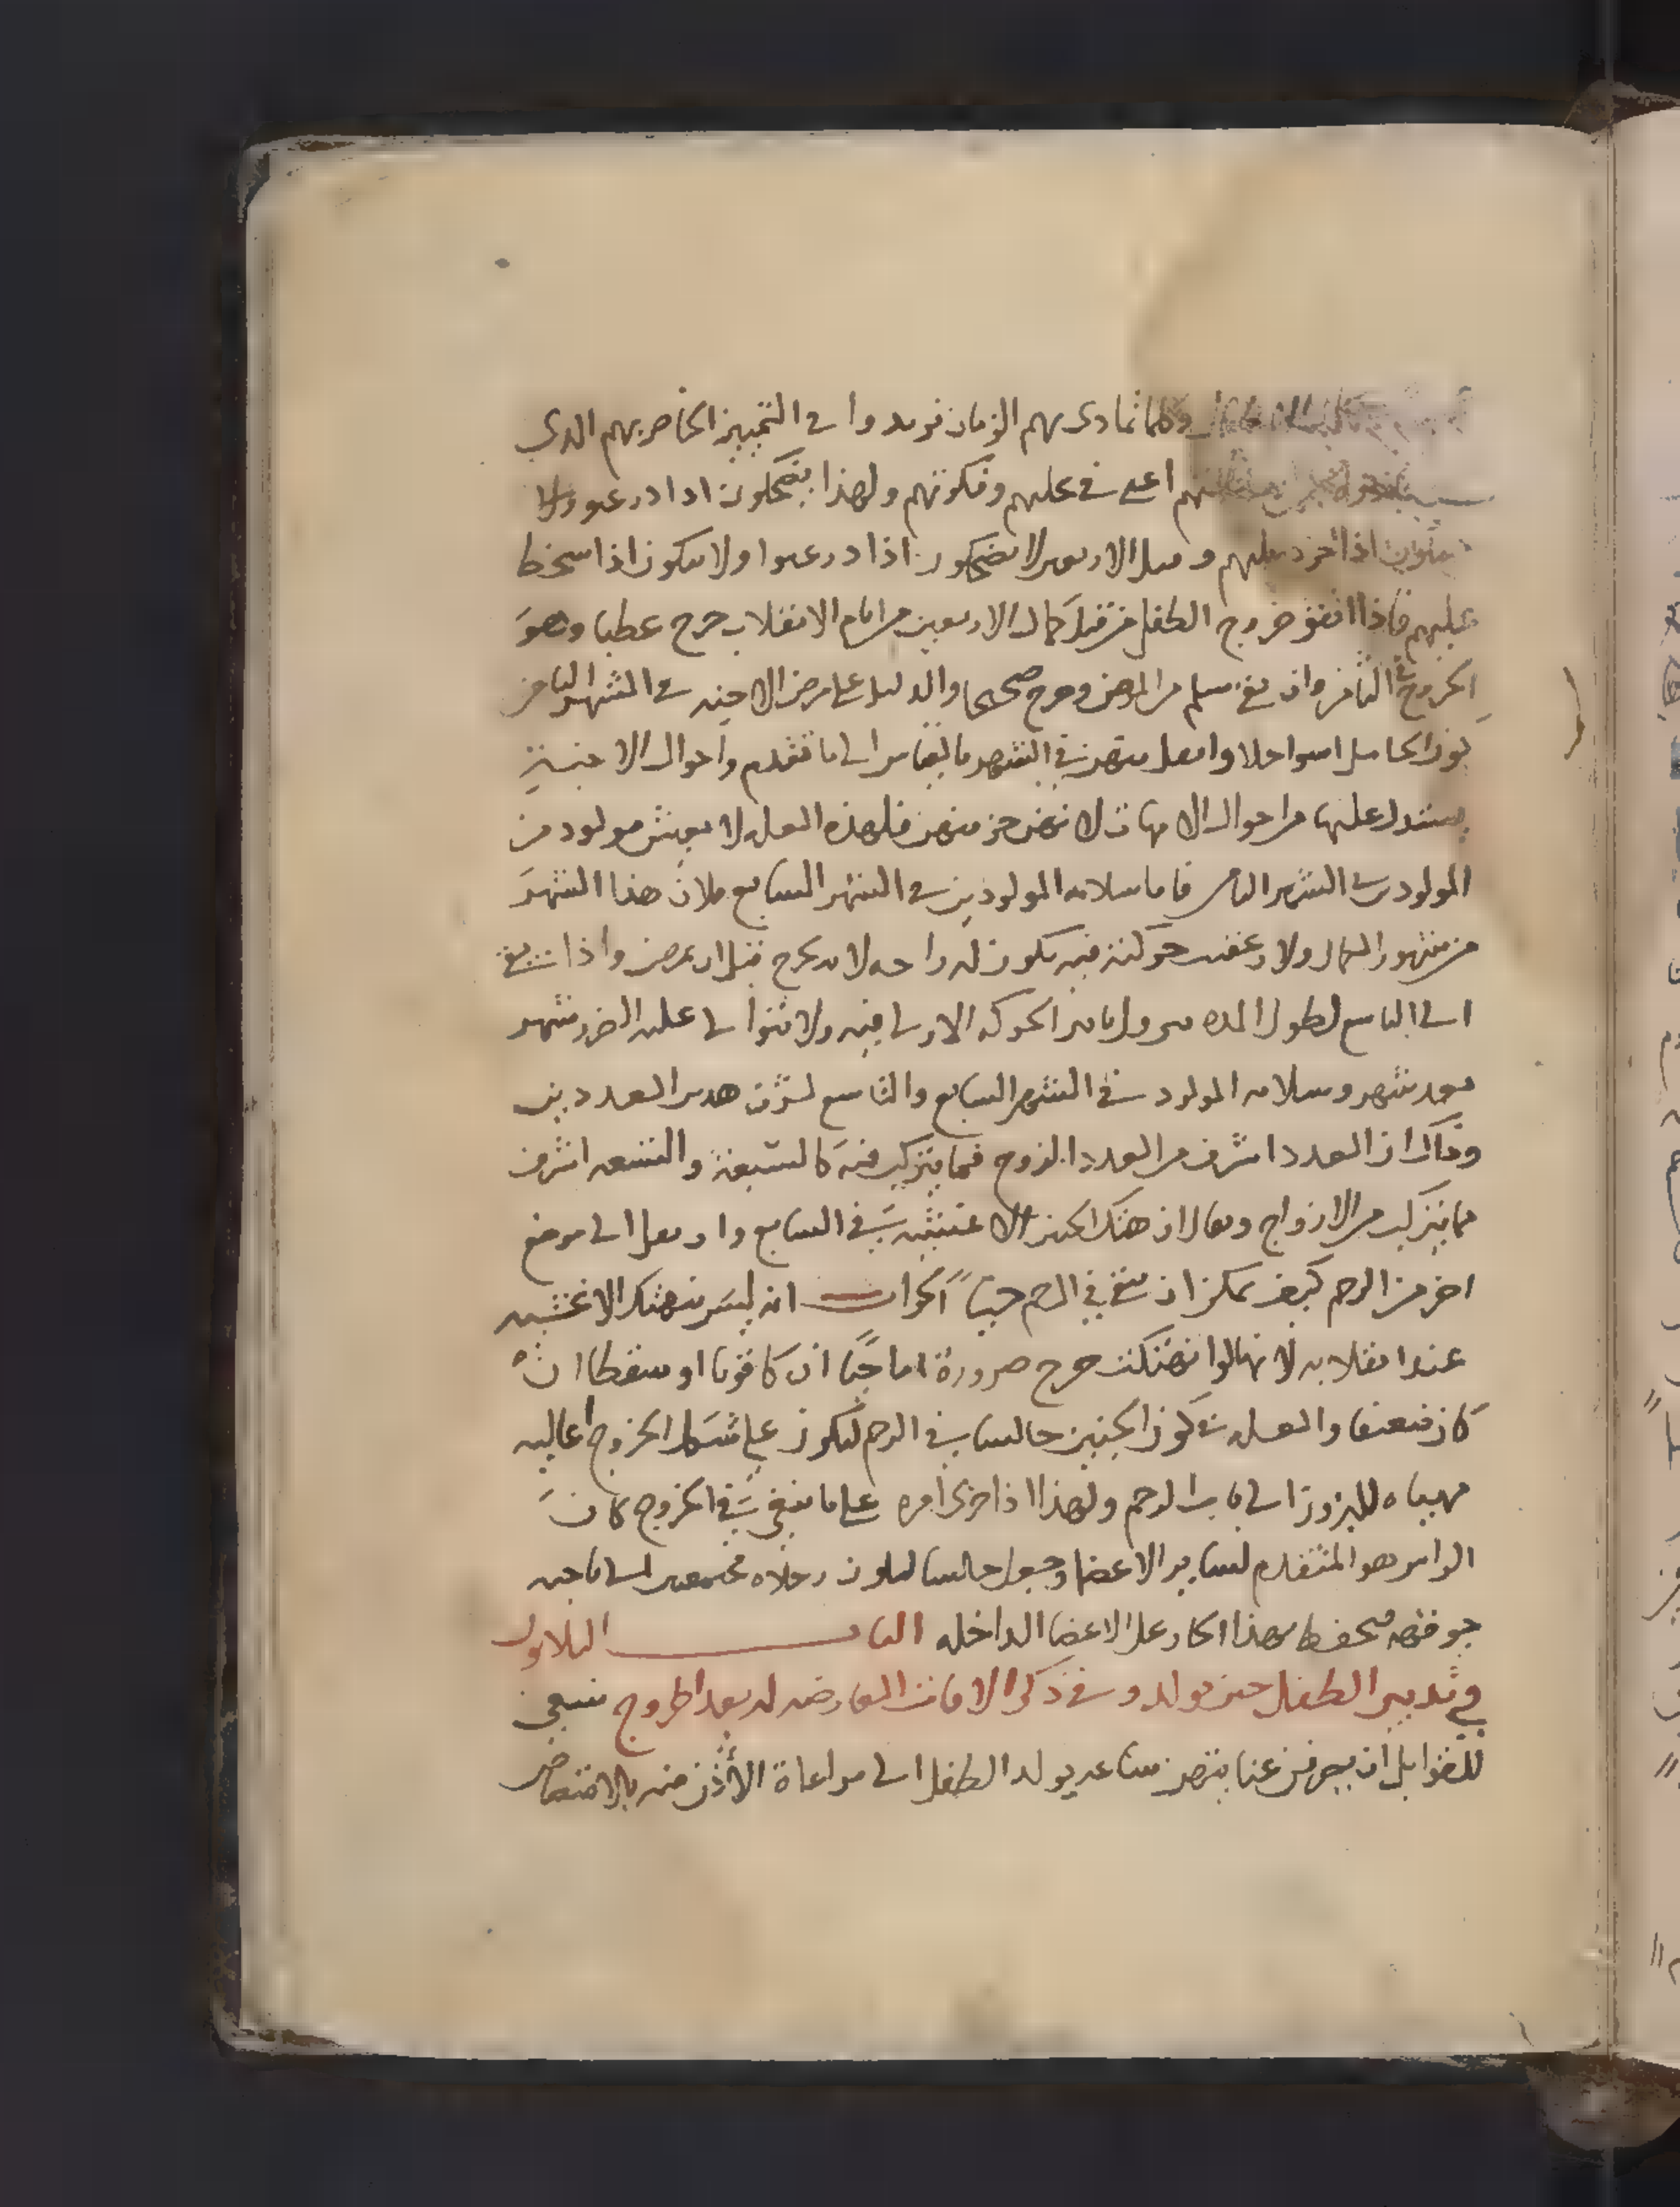 وكلما تمادى بهم الزمان فربدوا في التمييز الخاص بهم الدي
اعى في علهم وفكوتهم ولهذا يضحكون ادا درعوا ولا
اذا حرد عليهم وقبل الاربعين لا يضحكون اذا درعوا ولا يبكون اذا سخط
عليهم فاذا اتفق خروج الطفل من قبل كمال الاربعين من ايام الانقلاب خرج عطبا وهو
الخروج في الثامن وان بقي سلم من المرض وخرج صحيحا والدليل على مرض الاجنه في الشهر الثامن
كون الحامل اسوا حالا واثقل منهن في الشهر بالقياس الى ما تقدم واحوال الاجنة
يستدل عليها من احوال الامهات لانهن جز منهن فلهذه العله لا يعيش مولود من
المولودين في الشهر الثامن فاما سلامه المولودين في الشهر السابع فلان هذا الشهر
من شهور الكمال ولا عقبت حركته فيه تكون له راحه لانه يخرج قبل ان يمرض واذا بقي
الى التاسع لطول المده يزول تاثير الحركه الاولى فيه ولا تتوالى عليه الضرر شهر
بعد شهر وسلامه المولود في الشهر السابع والتاسع لشرف هدين العددين
وذاك ان العدد اشرف من العدد الزوج فما يتركب منه كالسبعة والتسعه اشرف
مما يتركب من الازواج ويقال ان هتك الجنين الاغشيه في السابع وانتقل الى موضع
اخر من الرحم كيف يمكن ان يبقى في الرحم حيا الجواب انه ليس ينهتك الاغشيه
عند انقلابه لانها لو انهتكت خرج ضرورة اما حيا ان كا قويا او سقطا ان
كان ضعيفا والعله في كون الجنين جالسا في الرحم ليكون على شكل الخروج اعاليه
مهيىاه للبروز الى باب الرحم ولهذا اذا جرى امره على ما ينبغي في الخروج كان
الراس هو المتقدم لساير الاعضا وجعل جالسا لتكون رجلاه مجتمعين الى ناحيه
جوفه فيحفظ بهذا الحاد على الاعضا الداخله الباب الثلاثون
في تدبير الطفل حين يولد وفي ذكر الافات العارضه له بعد الخروج ينبغي
للقوابل ان يصرفن عنايتهن ساعه يولد الطفل الى مراعاة الأذن منه بالامتصاص